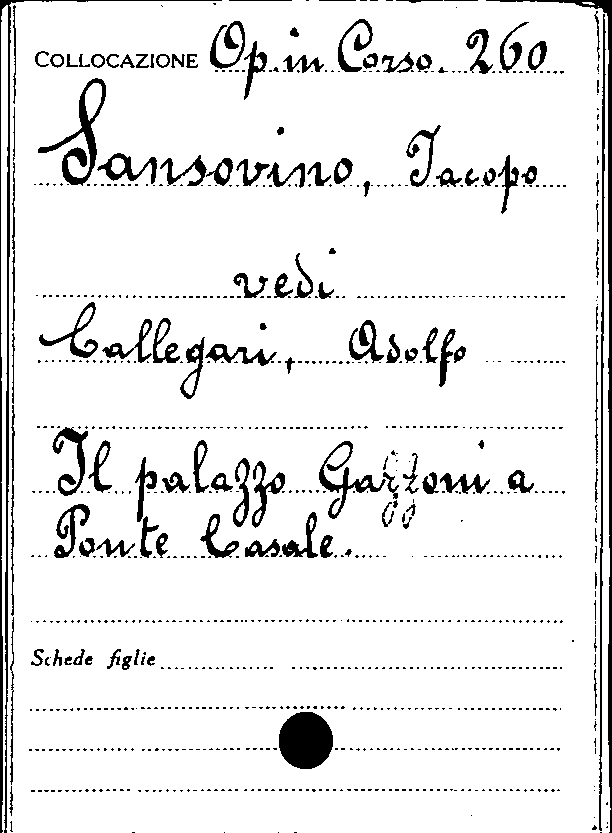 COLLOCAZIONE Op. in Corso. 260
Sansovino, Jacopo
vedi
Callegari, Adolfo
Il palazzo Gazzoni a
Ponte Casale.
Schede figlie